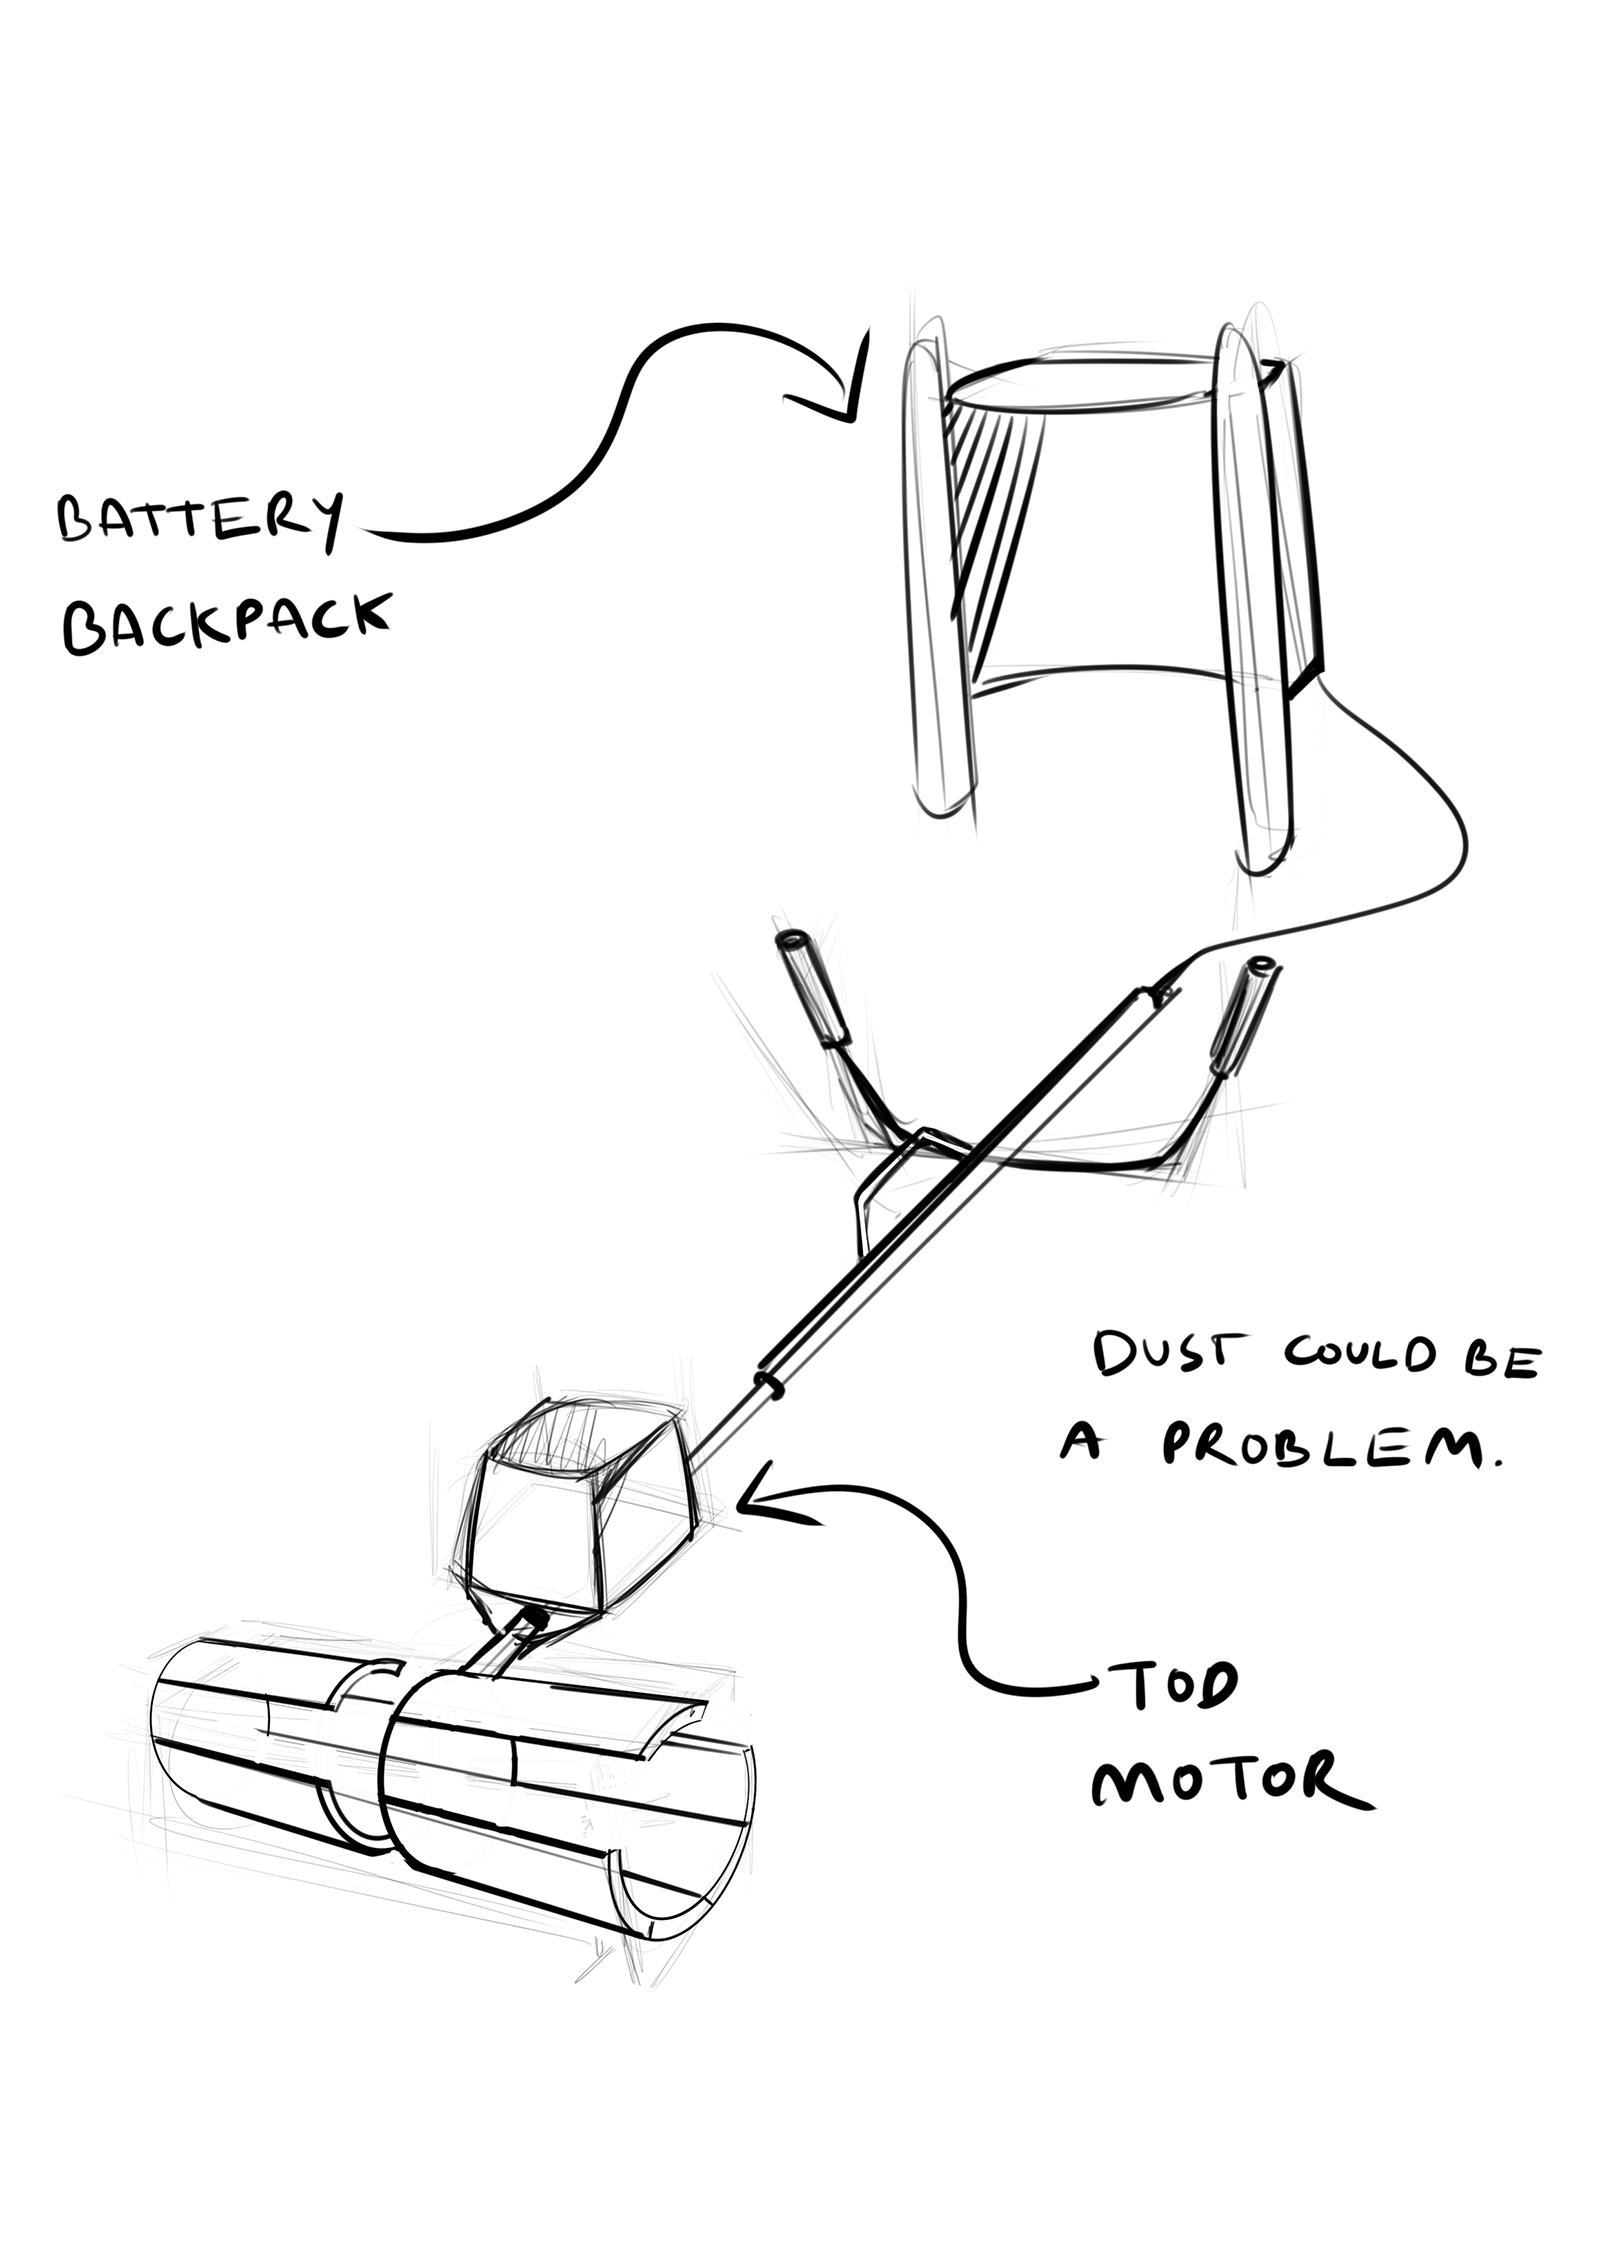 BATTERY
BACKPACK
DUST COULD BE
A PROBLEM.
TOD
MOTOR